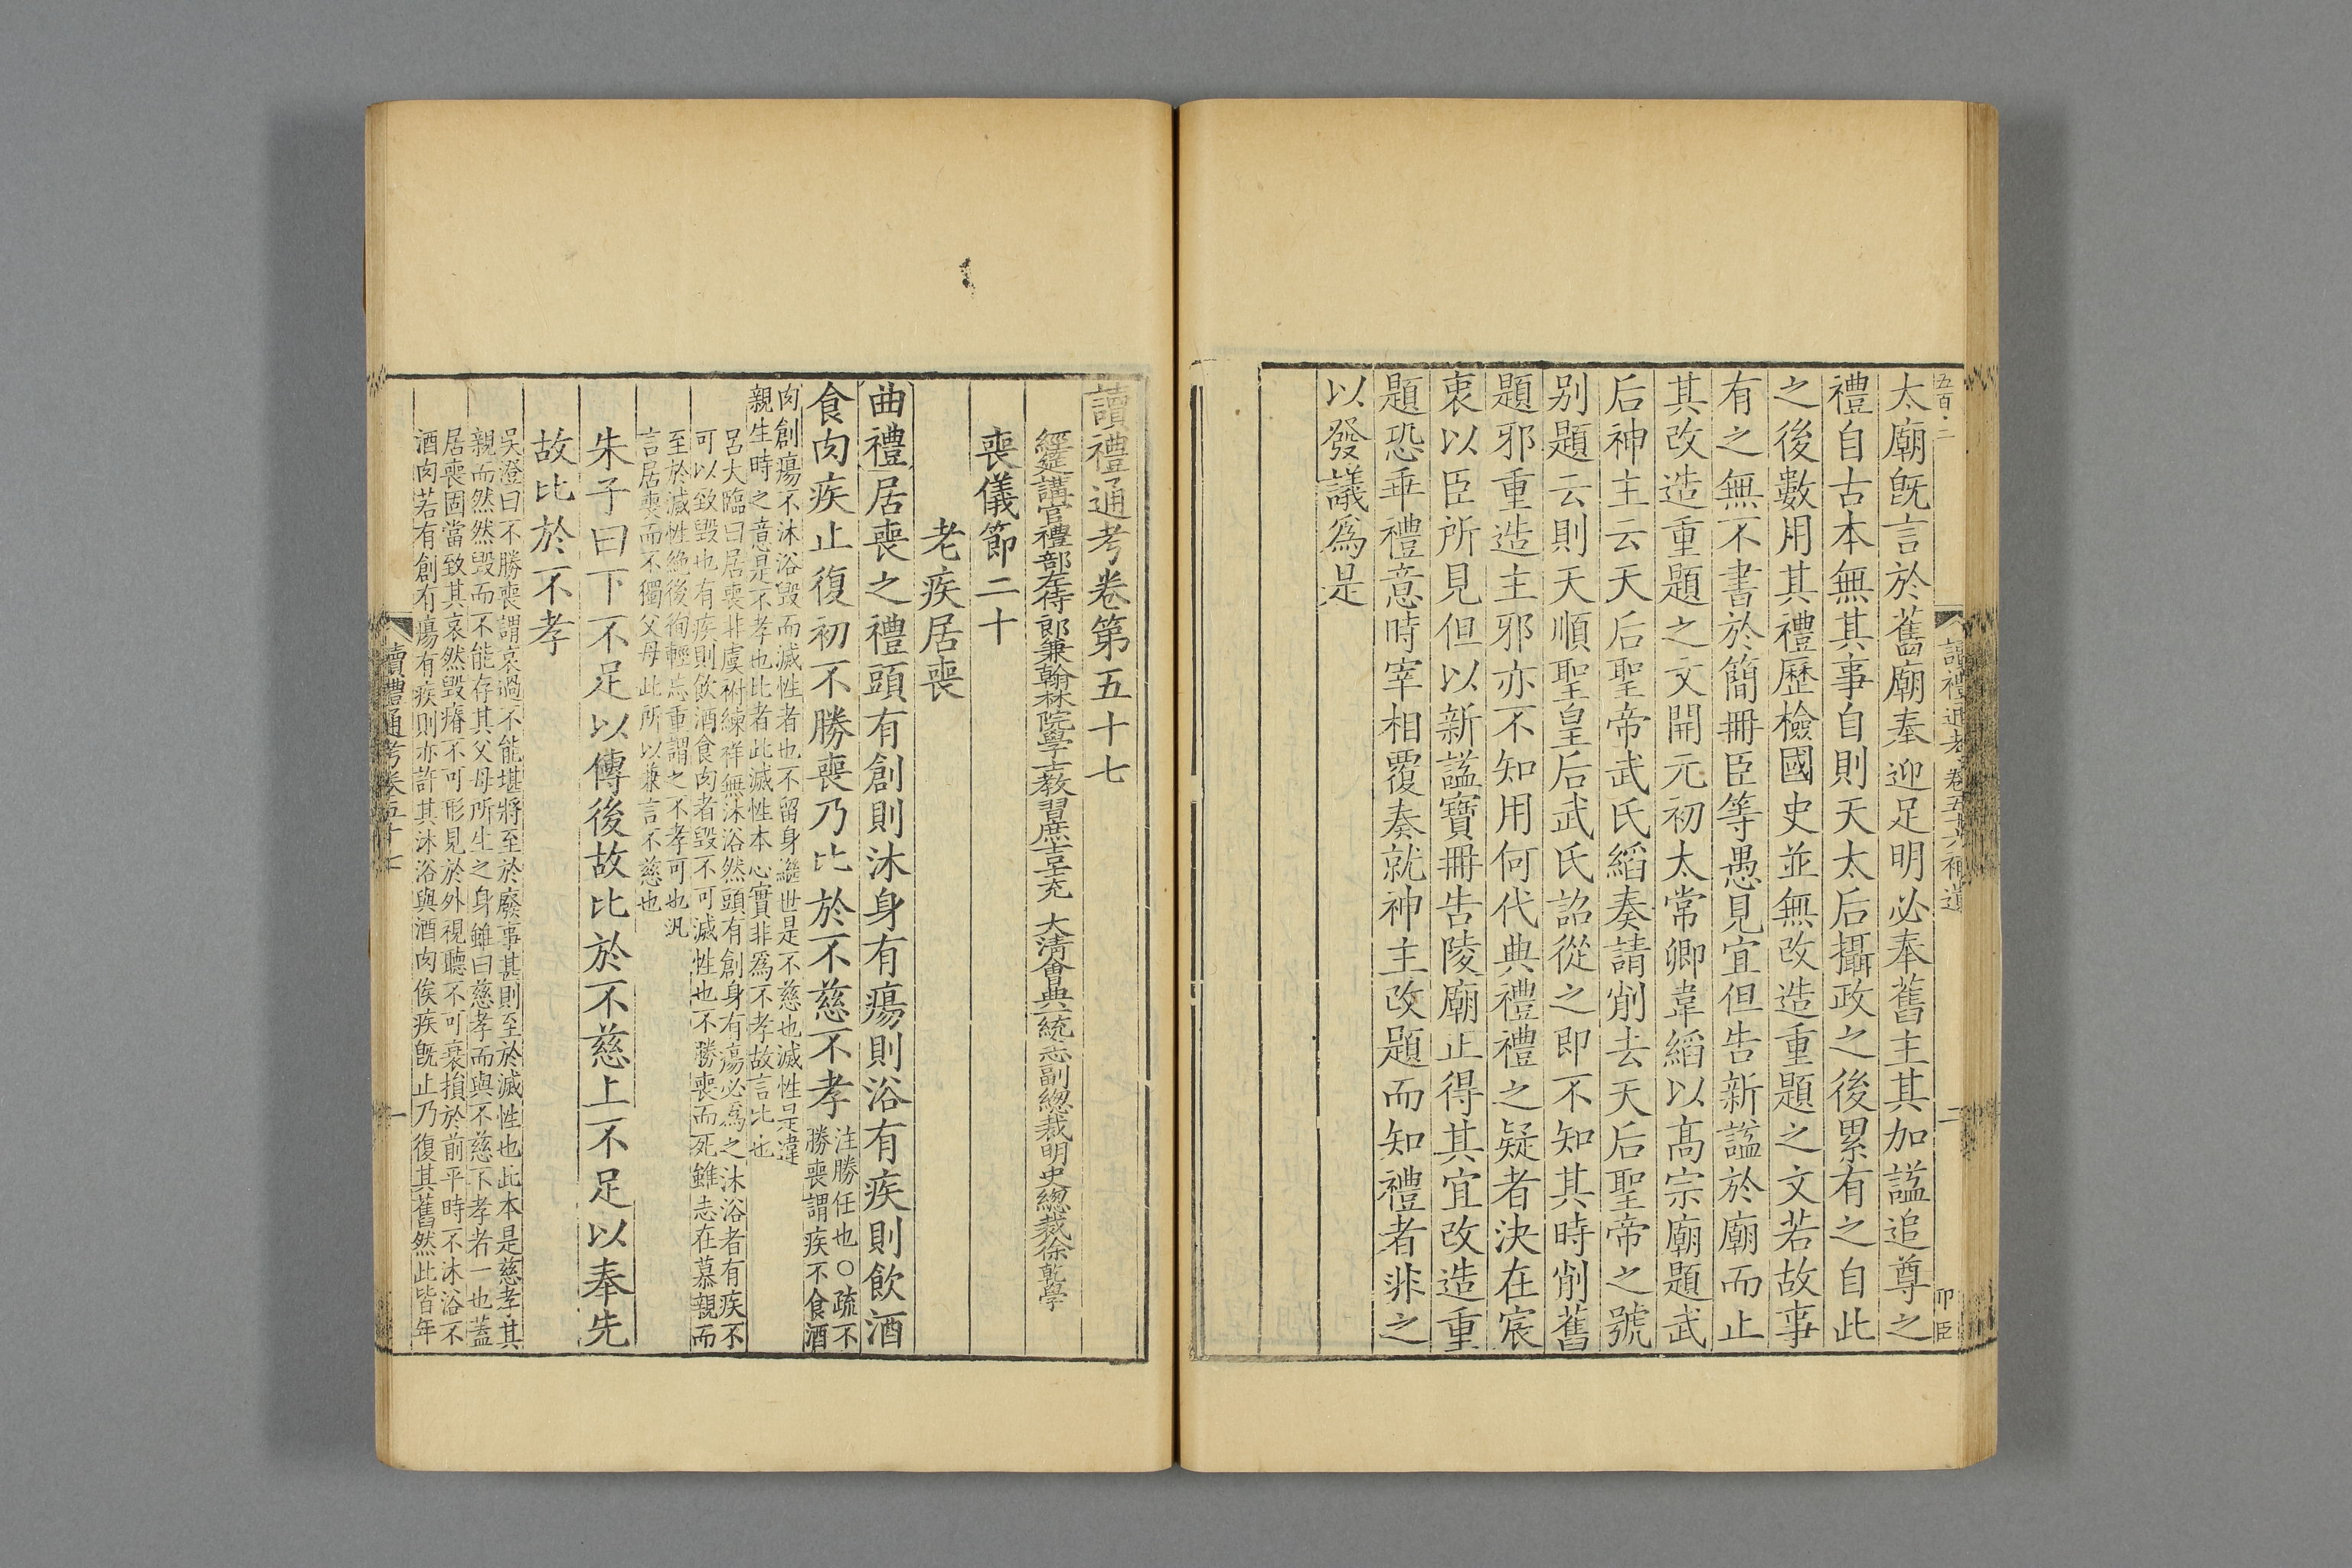 五百二
讀禮通考卷五十六補遺
二
卬臣
太廟旣言於舊廟奉迎足明必奉舊主其加謚追尊之
禮自古本無其事自則天太后攝政之後累有之自此
之後數用其禮歷檢國史並無改造重題之文若故事
有之無不書於簡冊臣等愚見宜但告新謚於廟而止
其改造重題之文開元初太常卿韋縚以高宗廟題武
后神主云天后聖帝武氏縚奏請削去天后聖帝之號
别題云則天順聖皇后武氏詔從之即不知其時削舊
題邪重造主邪亦不知用何代典禮禮之疑者決在宸
衷以臣所見但以新謚寶冊告陵廟正得其宜改造重
題恐乖禮意時宰相覆奏就神主改題而知禮者非之
以發議爲是
讀禮通考卷第五十七
經筵講官禮部左侍郎兼翰林院學士教習庶吉士充 大清會典一統志副總裁明史總裁徐乾學
喪儀節二十
老疾居喪
曲禮居喪之禮頭有創則沐身有瘍則浴有疾則飲酒
食肉疾止復初不勝喪乃比於不慈不孝
注勝任也○疏不
勝喪謂疾不食酒
肉創瘍不沐浴毀而滅性者也不留身繼世是不慈也滅性是違
親生時之意是不孝也比者此滅性本心實非爲不孝故言比也
呂大臨曰居喪非虞祔練祥無沐浴然頭有創身有瘍必爲之沐浴者有疾不
可以致毀也有疾則飲酒食肉者毀不可滅性也不勝喪而死雖志在慕親而
至於滅性絶後徇輕忘重謂之不孝可也汎
言居喪而不獨父母此所以兼言不慈也
朱子曰下不足以傳後故比於不慈上不足以奉先
故比於不孝
吳澄曰不勝喪謂哀過不能堪將至於廢事甚則至於滅性也此本是慈孝其
親而然然毀而不能存其父母所生之身雖曰慈孝而與不慈不孝者一也蓋
居喪固當致其哀然毀瘠不可形見於外視聽不可衰損於前平時不沐浴不
酒肉若有創有瘍有疾則亦許其沐浴與酒肉俟疾旣止乃復其舊然此皆年
讀禮通考卷五十七
一